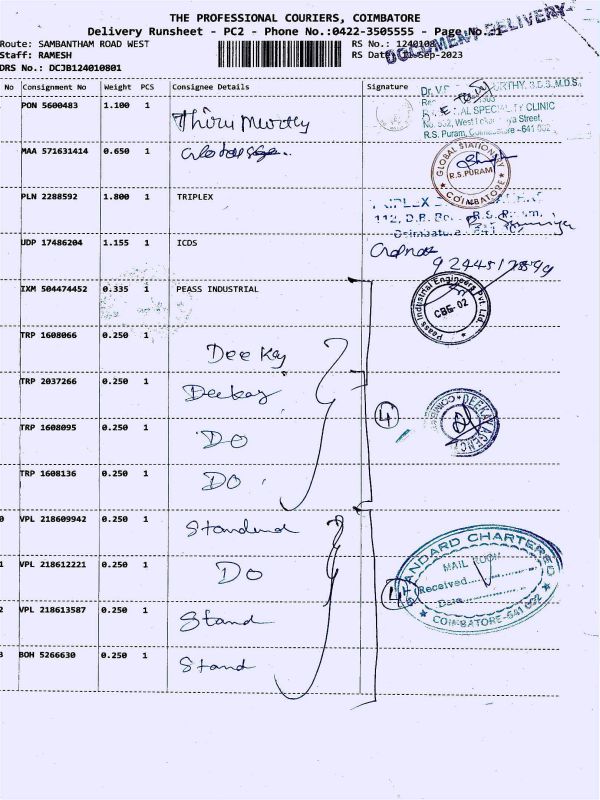 THE PROFESSIONAL COURIERS, COIMBATORE
Delivery Runsheet - PC2 - Phone No.:0422-3505555 - Page No.:1
DOCUMENT DELIVERY
Route: SAMBANTHAM ROAD WEST
RS No.: 1240108
Staff: RAMESH
RS Date: 11-Sep-2023
DRS No.: DCJB124010801
No Consignment No Weight PCS Consignee Details Signature
PON 5600483 1.100 1 Thiru Murthy
CLINIC
R.S. Puram, Coimbatore - 641 002
MAA 571631414 0.650 1
GLOBAL STATIONERY
R.S.PURAM
COIMBATORE
PLN 2288592 1.800 1 TRIPLEX
TRIPLEX
112, D.B. R.S. Puram,
Coimbatore - 641
UDP 17486204 1.155 1 ICDS
IXM 504474452 0.335 1 PEASS INDUSTRIAL
Peass Industrial Engineers Pvt. Ltd.
CBE-02
TRP 1608066 0.250 1 Dee Kay
TRP 2037266 0.250 1 Deekay
4
DEEKAY AGENCY
TRP 1608095 0.250 1 DO
TRP 1608136 0.250 1 DO
0 VPL 218609942 0.250 1 Standard
1 VPL 218612221 0.250 1 DO
4
STANDARD CHARTERED
MAIL ROOM
Received
Date
COIMBATORE-641 002
2 VPL 218613587 0.250 1 Stand
3 BOH 5266630 0.250 1 Stand